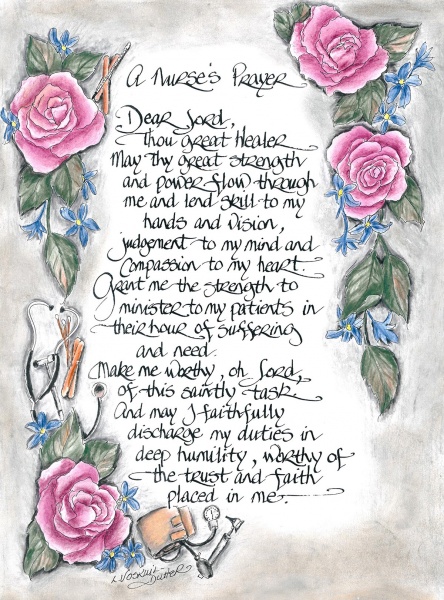 A Nurse's Prayer
Dear Lord,
Thou great Healer
May Thy great strength
and power flow through
me and lend skill to my
hands and vision,
judgement to my mind and
Compassion to my heart.
Grant me the strength to
minister to my patients in
their hour of suffering
and need.
Make me worthy, oh Lord,
of this saintly task
And may I faithfully
discharge my duties in
deep humility, worthy of
the trust and faith
placed in me.